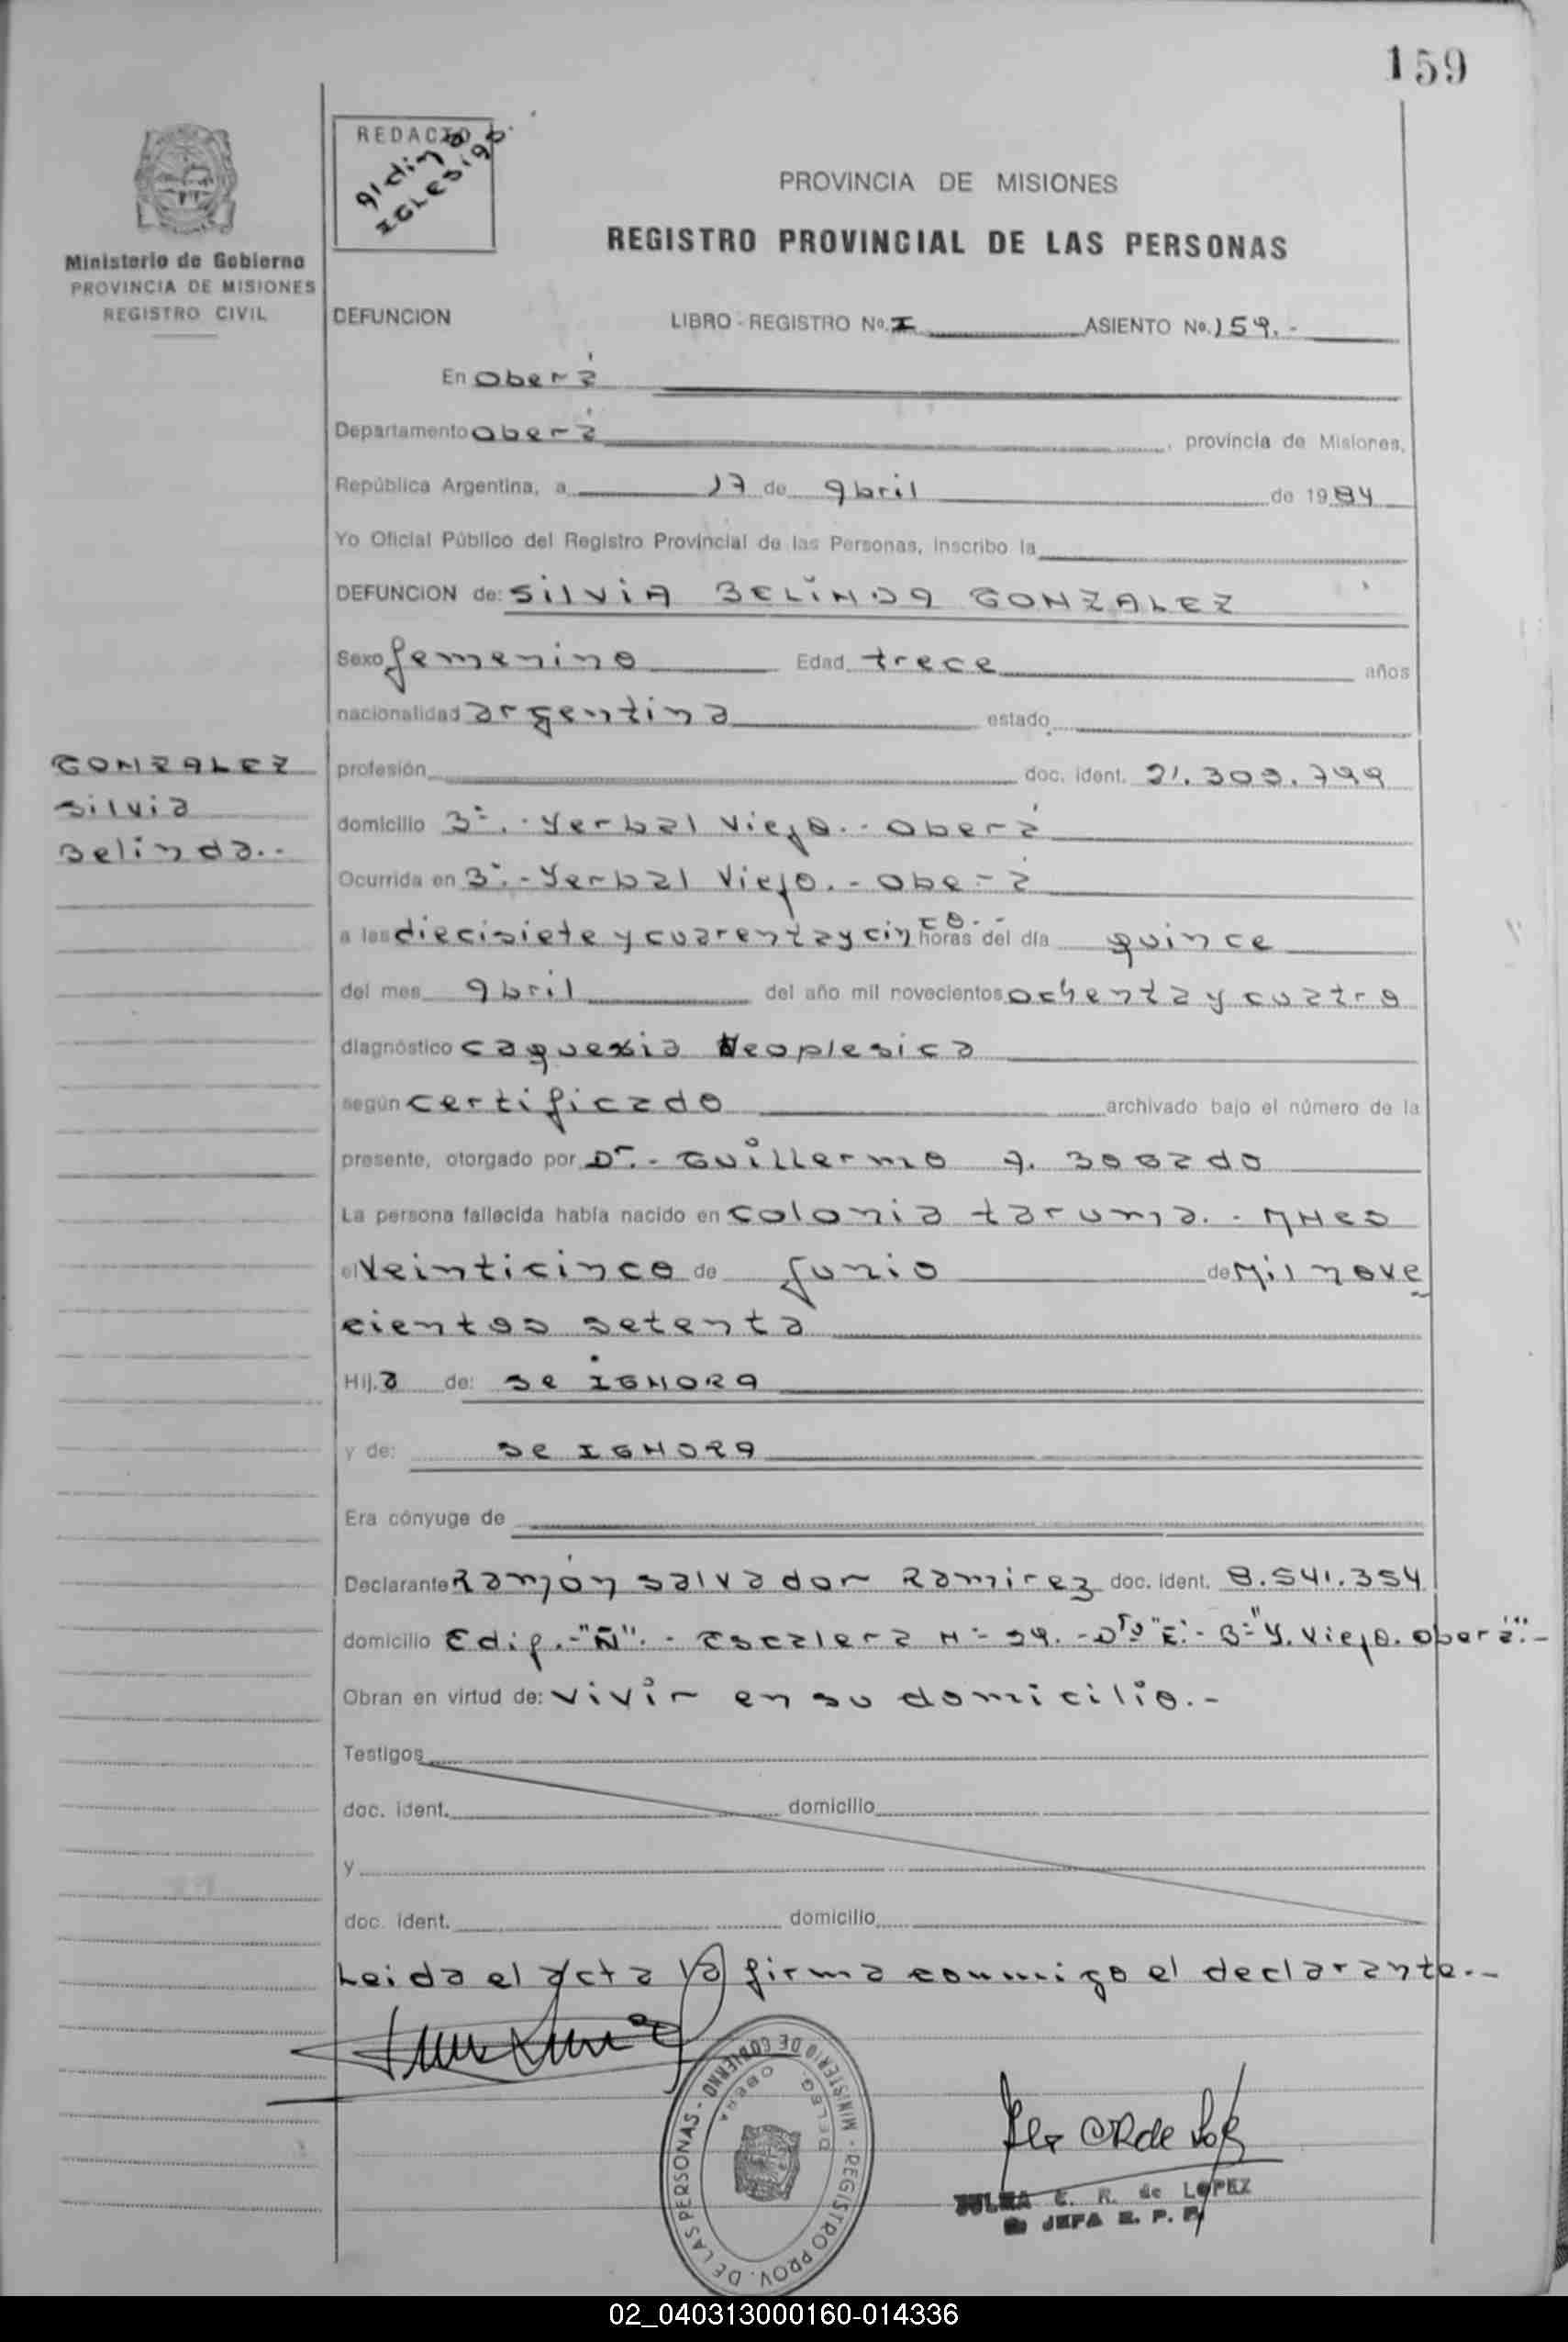 159
REDACTO
gldin a
IGLESIAS
Ministerio de Gobierno
PROVINCIA DE MISIONES
REGISTRO CIVIL
PROVINCIA DE MISIONES
REGISTRO PROVINCIAL DE LAS PERSONAS
DEFUNCION LIBRO - REGISTRO No. I ASIENTO No. 159.-
En Oberá
Departamento Oberá, provincia de Misiones,
República Argentina, a 17 de Abril de 1984
Yo Oficial Público del Registro Provincial de las Personas, inscribo la
DEFUNCION de: SilviA BELiNDA GONZALEZ
Sexo femenino Edad trece años
nacionalidad argentina estado
GONZALEZ
Silvia
Belinda.-
profesión doc. ident. 21.303.799
domicilio Bº.- Yerbal Viejo.- Oberá
Ocurrida en Bº.- Yerbal Viejo.- Oberá
a las diecisiete y cuarenta y cinco.- horas del día quince
del mes Abril del año mil novecientos ochenta y cuatro
diagnóstico caquexia Neoplesica
según certificado archivado bajo el número de la
presente, otorgado por Dr.- Guillermo A.
La persona fallecida había nacido en colonia taruma.- MNes
el Veinticinco de Junio de Mil nove
cientos setenta
Hij.a de: se IGNORA
y de: se IGNORA
Era cónyuge de
Declarante Ramón Salvador Ramirez doc. ident. 8.541.354
domicilio Edif.-"Ñ".- Escalera Nº 29.- Dto "E".- Bº "Y. Viejo. Oberá".-
Obran en virtud de: vivir en su domicilio.-
Testigos
doc. ident. domicilio
y
doc. ident. domicilio
Leida el acta la firma conmigo el declarante.-
MINISTERIO DE GOBIERNO - REGISTRO PROV. DE LAS PERSONAS -
DELEG. OBERA
C. R. de LOPEZ
JEFA R. P. P.
02_040313000160-014336